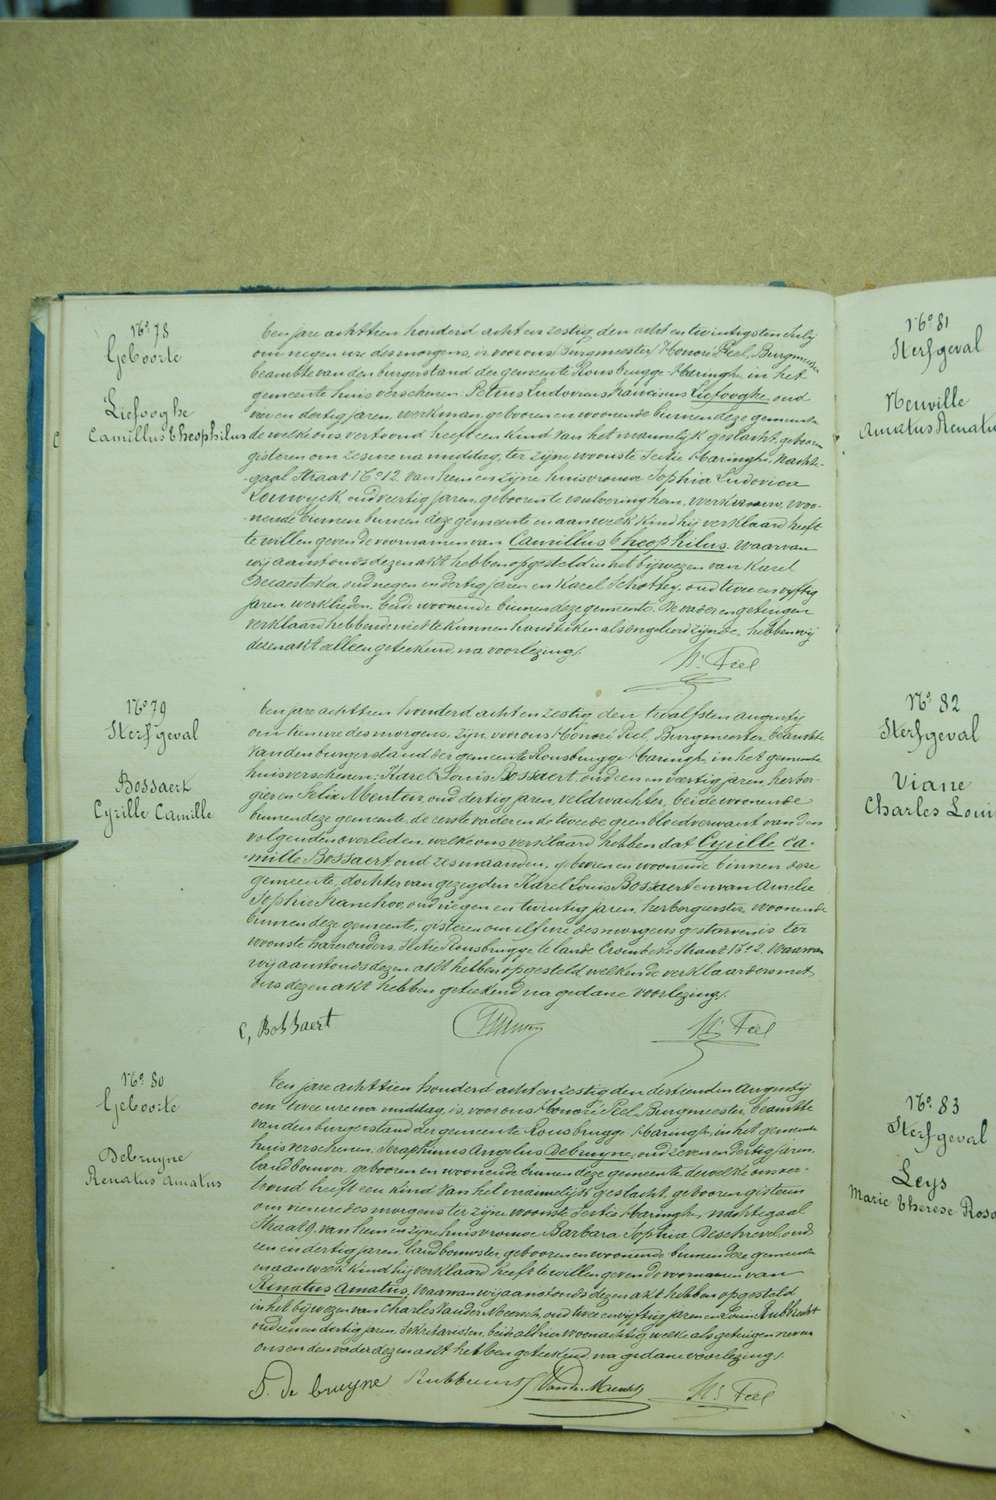 No 78
Geboorte
Liefooghe
Camillus Theophilus
Een jare achttien honderd acht en zestig den acht en twintigsten July
om negen ure des morgens, is voor ons Burgmeester Honoré Peel, Burgmeester
beambte van den burgerstand der gemeente Rousbrugge-Haringhe, in het
gemeente huis verschenen Petrus Ludovicus Franciscus Liefooghe, oud
en dertig jaren, werkman, geboren en woonende binnen deze gemeente
de welke ons vertoond heeft een kind van het mannelijk geslacht, geboren
gisteren om zes ure na middag, ter zijne woonste Sectie Haringhe, Nachte-
gaal Straat No 12 van hem en zijne huisvrouwe Sophia Ludovica
Leuwyck, oud veertig jaren, geboren te vanloeringhem, werkvrouw, woo-
nende binnen deze gemeente en aan welk kind hij verklaard heeft
te willen geven de voornamen van Camillus Theophilus. Waarvan
wij aanstonds dezen akt hebben opgesteld in het bijwezen van Karel
oud negen en dertig jaren en Karel Schottey, oud twee en vyftig
jaren, werklieden, beide woonende binnen deze gemeente. De vader en getuigen
verklaard hebbende niet te kunnen handteeken als ongeleerd zijnde, hebben wij
dezen akt alleen geteekend, na voorlezing.
Hé Peel
No 79
Sterfgeval
Bossaert
Cyrille Camille
Een jare achttien honderd acht en zestig den twalfsten augusty
om tien ure des morgens, zijn voor ons Honoré Peel, Burgmeester, beambte
van den burgerstand der gemeente Rousbrugge-Haringhe, in het gemeente
huis verschenen: Karel Louis Bossaert, oud een en veertig jaren, herber-
gier en Felix Menten, oud dertig jaren, veldwachter, beide woonende
binnen deze gemeente, de eerste vader en de tweede geen bloedverwant van den
volgenden overleden, welke ons verklaard hebben dat Cyrille Ca-
mille Bossaert, oud zes maanden, geboren en woonende binnen deze
gemeente, dochter van gezegden Karel Louis Bossaert en van Amelie
Sophie oud negen en twintig jaren, herbergierster, woonende
binnen deze gemeente, gisteren om elf ure des morgens gestorven is ter
woonste harer ouders, Sectie Rousbrugge te lande Crombeke Straat No 2. Waarvan
wij aanstonds dezen akt hebben opgesteld welken de verklaarders met
ons dezen akt hebben geteekend na gedane voorlezing.
C, Bossaert
Hé Peel
No 80
Geboorte
Debruyne
Renatus Amatus
Een jare achttien honderd acht en zestig den dertienden Augusty
om twee ure na middag, is voor ons Honoré Peel, Burgmeester, beambte
van den burgerstand der gemeente Rousbrugge-Haringhe, in het gemeente
huis verschenen, Seraphinus Angelus Debruyne, oud zeven en dertig jaren,
landbouwer, geboren en woonende binnen deze gemeente dewelke ons ver-
toond heeft een kind van het mannelijk geslacht, geboren gisteren
om ure des morgens ter zijne woonste Sectie Haringhe, nachtegaal
Straat 9, van hem en zijne huisvrouwe Barbara Sophia Deschrevel, oud
een en dertig jaren, landbouwster, geboren en woonende binnen deze gemeente
en aan welk kind hij verklaard heeft te willen geven de voornamen van
Renatus Amatus, Waarvan wij aanstonds dezen akt hebben opgesteld
in het bijwezen van Charles Vander Meersch, oud twee en vyftig jaren en Louis
oud een en dertig jaren, sekretarissen, beide alhier woonachtig, welke als getuigen neven
ons en den vader dezen akt hebben geteekend na gedane voorlezing.
S. de bruyne
Vander Meersch
Hé Peel
No 81
Sterfgeval
Neuville
Amatus Renatus
No 82
Sterfgeval
Viane
Charles Loui
No 83
Sterfgeval
Leys
Marie Therese Rosa